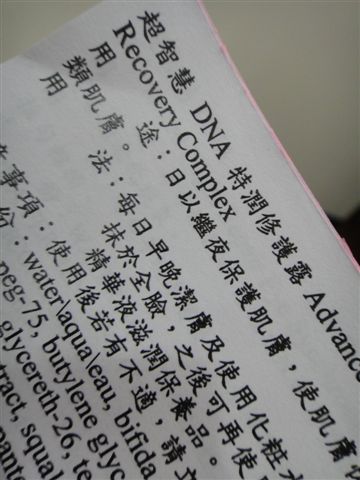 超智慧 DNA 特潤修護露 Advance
Recovery Complex
用 途：日以繼夜保護肌膚，使肌膚
類肌膚。
用 法：每日早晚潔膚及使用化妝水
抹於全臉，之後可再使
精華液滋潤保養品。
事項：使用後若有不適，請立
份：water\aqua\eau, bifida
peg-75, butylene glyc
glycereth-26, te
tract, squal
pante